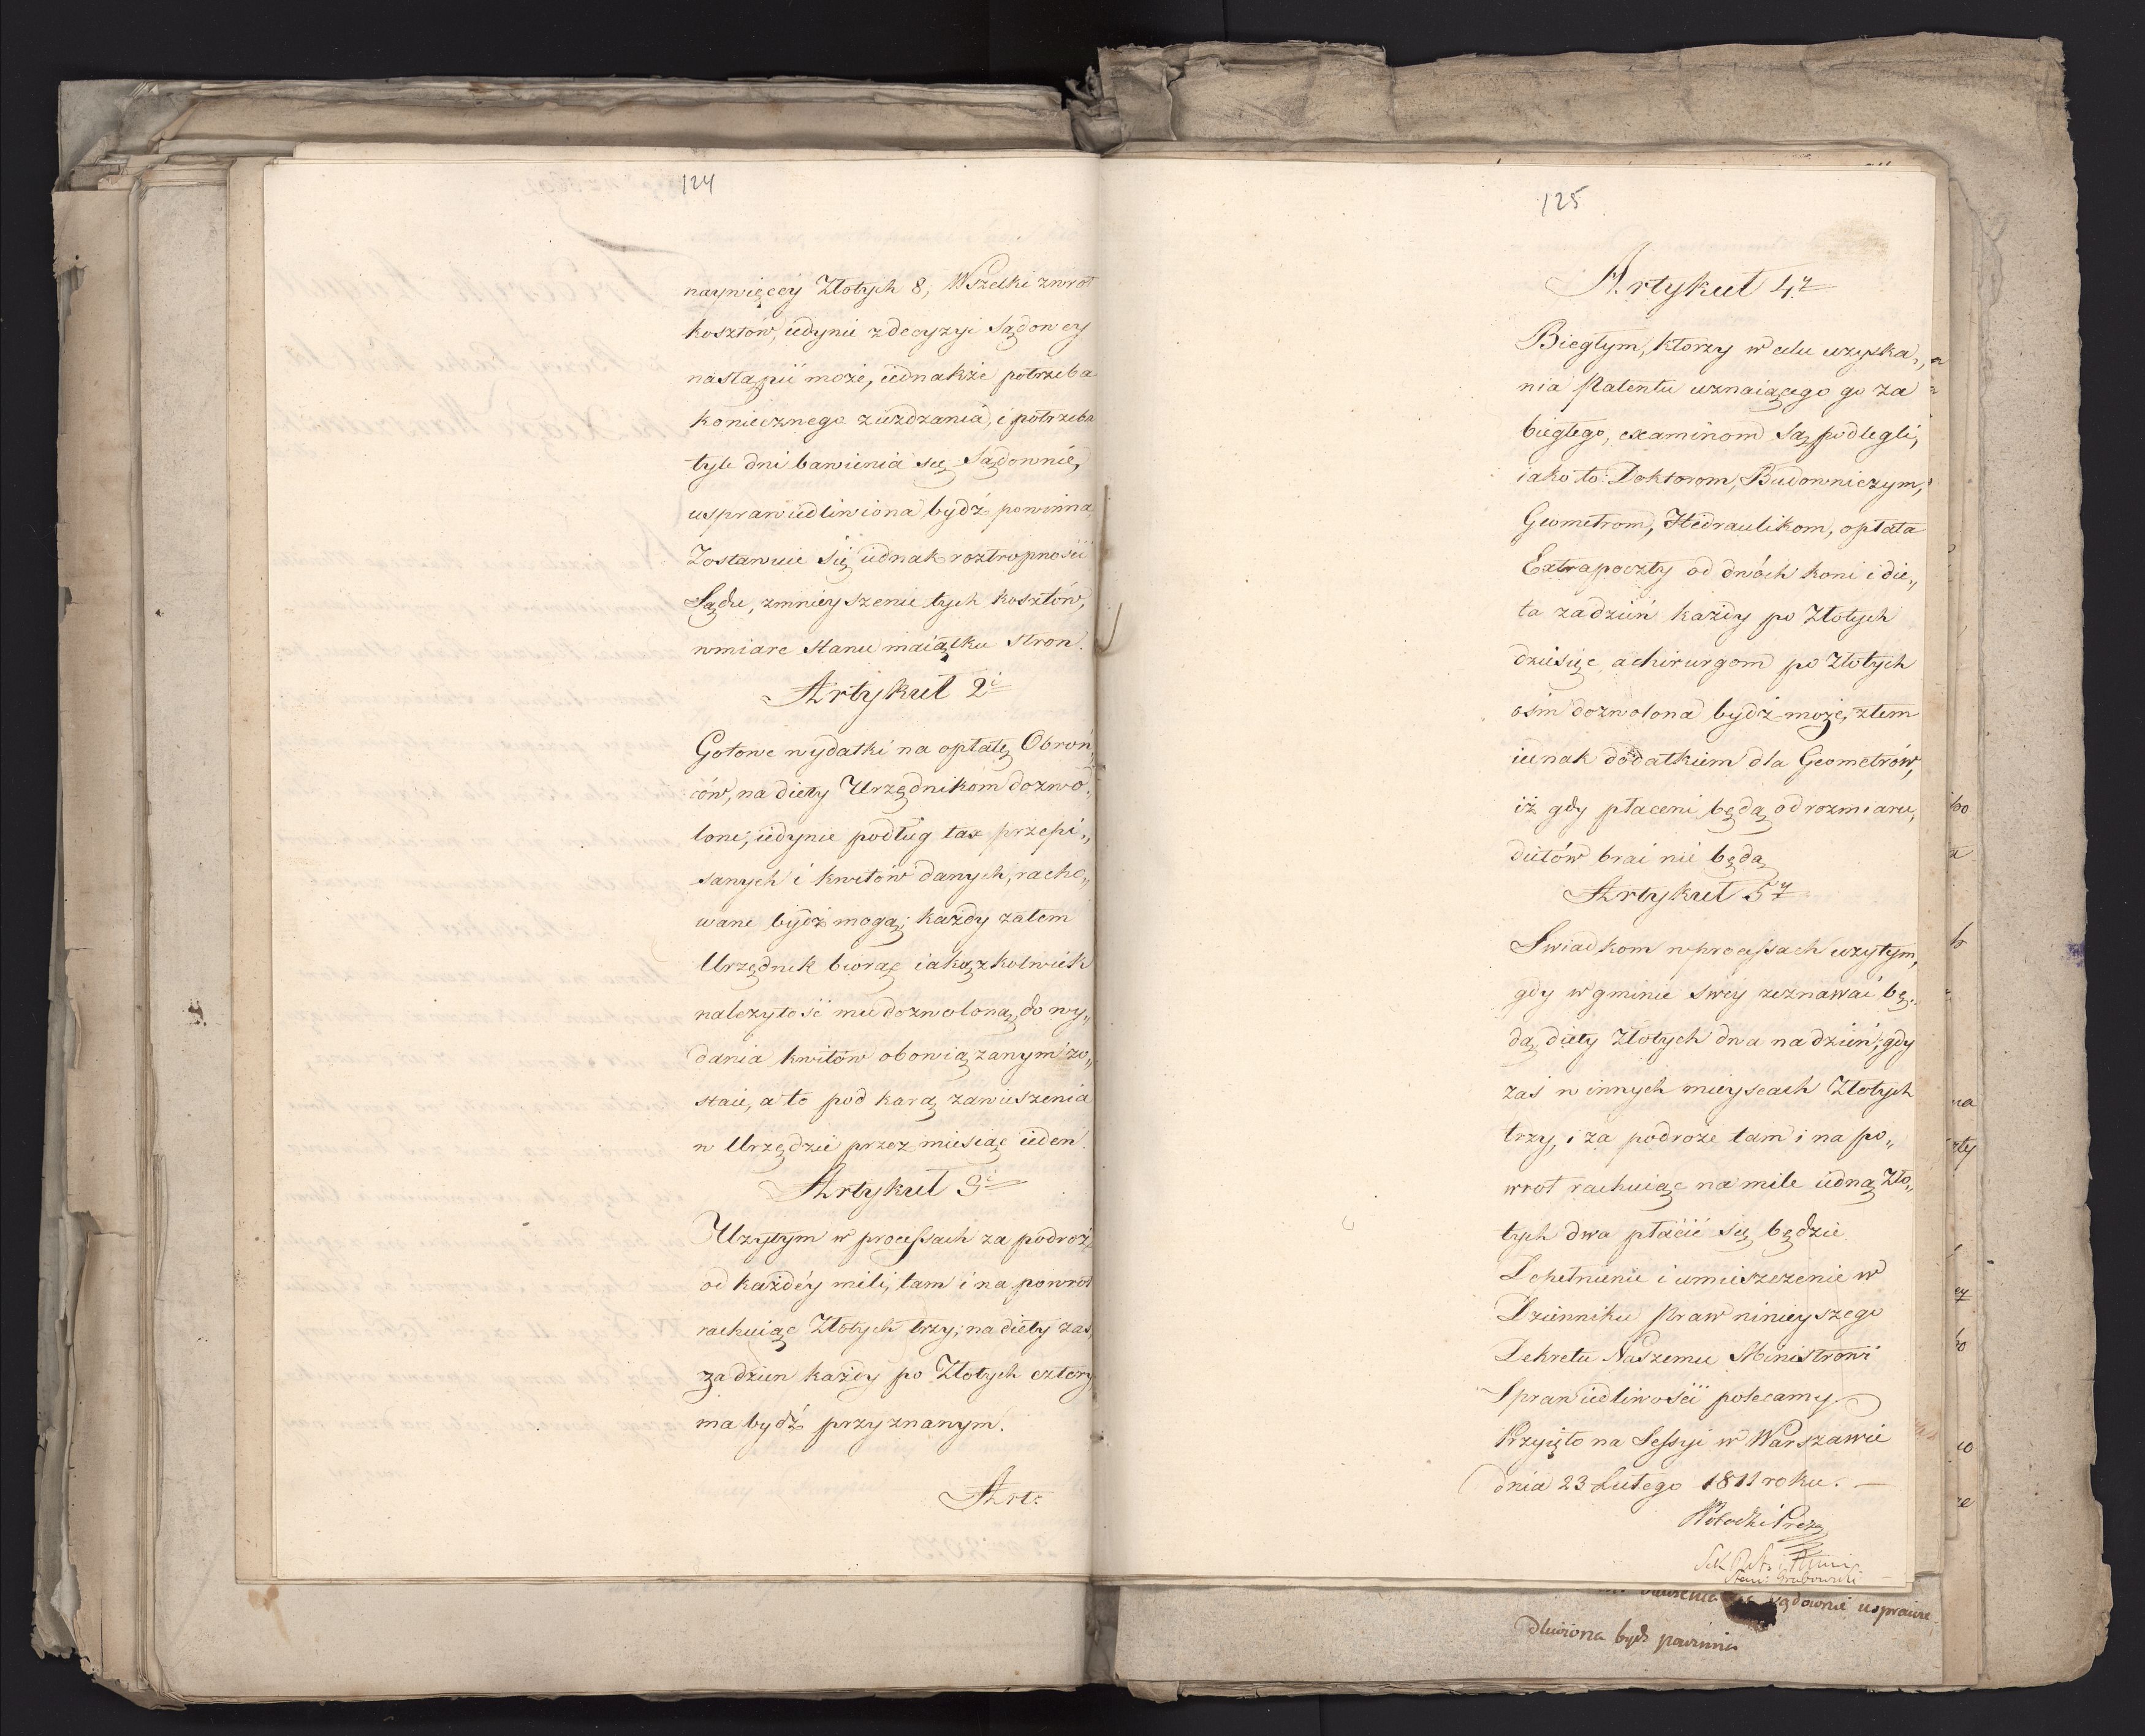 124
naywięcéy Złotych 8, Wszelki zwrot
kosztów, iedynie z decyzyi Sądowey
nastąpić może, iednakże potrzeba
koniecznego ziezdzania, i potrzeba
tyle dni bawienia się Sądownie,
usprawiedliwiona bydź powinna
Zostawuie się iednak roztropności
Sądu, zmnieyszenie tych kosztów,
w miarę stanu maiątku stron.
Artykuł 2i
Gotowe wydatki na opłatę Obroń„
ców, na diety Urzędnikom dozwo„
lone, iedynie podług tax przepi„
sanych i kwitów danych, racho„
wane bydź mogą; każdy zatem
Urzędnik biorąc iakążkolwiek
nalezytość mu dozwoloną, do wy„
dania kwitów obowiązanym zo„
staie, a to pod karą zawieszenia
w Urzędzie przez miesiąc ieden.
Artykuł 3i
Uzytym w processach za podroż
od każdéy mili, tam i na powrot
rachuiąc Złotych trzy; na diety zaś
za dzień każdy po Złotych cztery
ma bydź przyznanym.
Art:
125
Artykuł 4y
Biegłym, ktorzy w celu uzyska„
nia Patentu uznaiącego go za
biegłego, examinom są podlegli,
iako to: Doktorom, Budowniczym,
Geometrom, Hidraulikom, opłata
Extrapoczty od dwóch koni i die„
ta za dzień każdy po Złotych
dziesięc, a chirurgom po Złotych
ośm dozwolona bydź może, z tem
iednak dodatkiem dla Geometrów,
iż gdy płaceni będą od rozmiaru,
dietów brać nie będą
Artykuł 5y
Swiadkom w processach uzytym,
gdy w gminie swéy zeznawać bę„
dą, diety Złotych dwa na dzień, gdy
zaś w innych mieyscach Złotych
trzy, i za podroże tam i na po„
wrot rachuiąc na mile iedną Zło„
tych dwa płacić się będzie.
Dopełnienie i umieszczenie w
Dzienniku Praw ninieyszego
Dekretu Naszemu Ministrowi
Sprawiedliwości polecamy
Przyięto na Sessyi w Warszawie
dnia 23 Lutego 1811 roku. —
Potocki Prez
Stan: Grabowski
sądownie usprawie
dliwiona bydź powinna